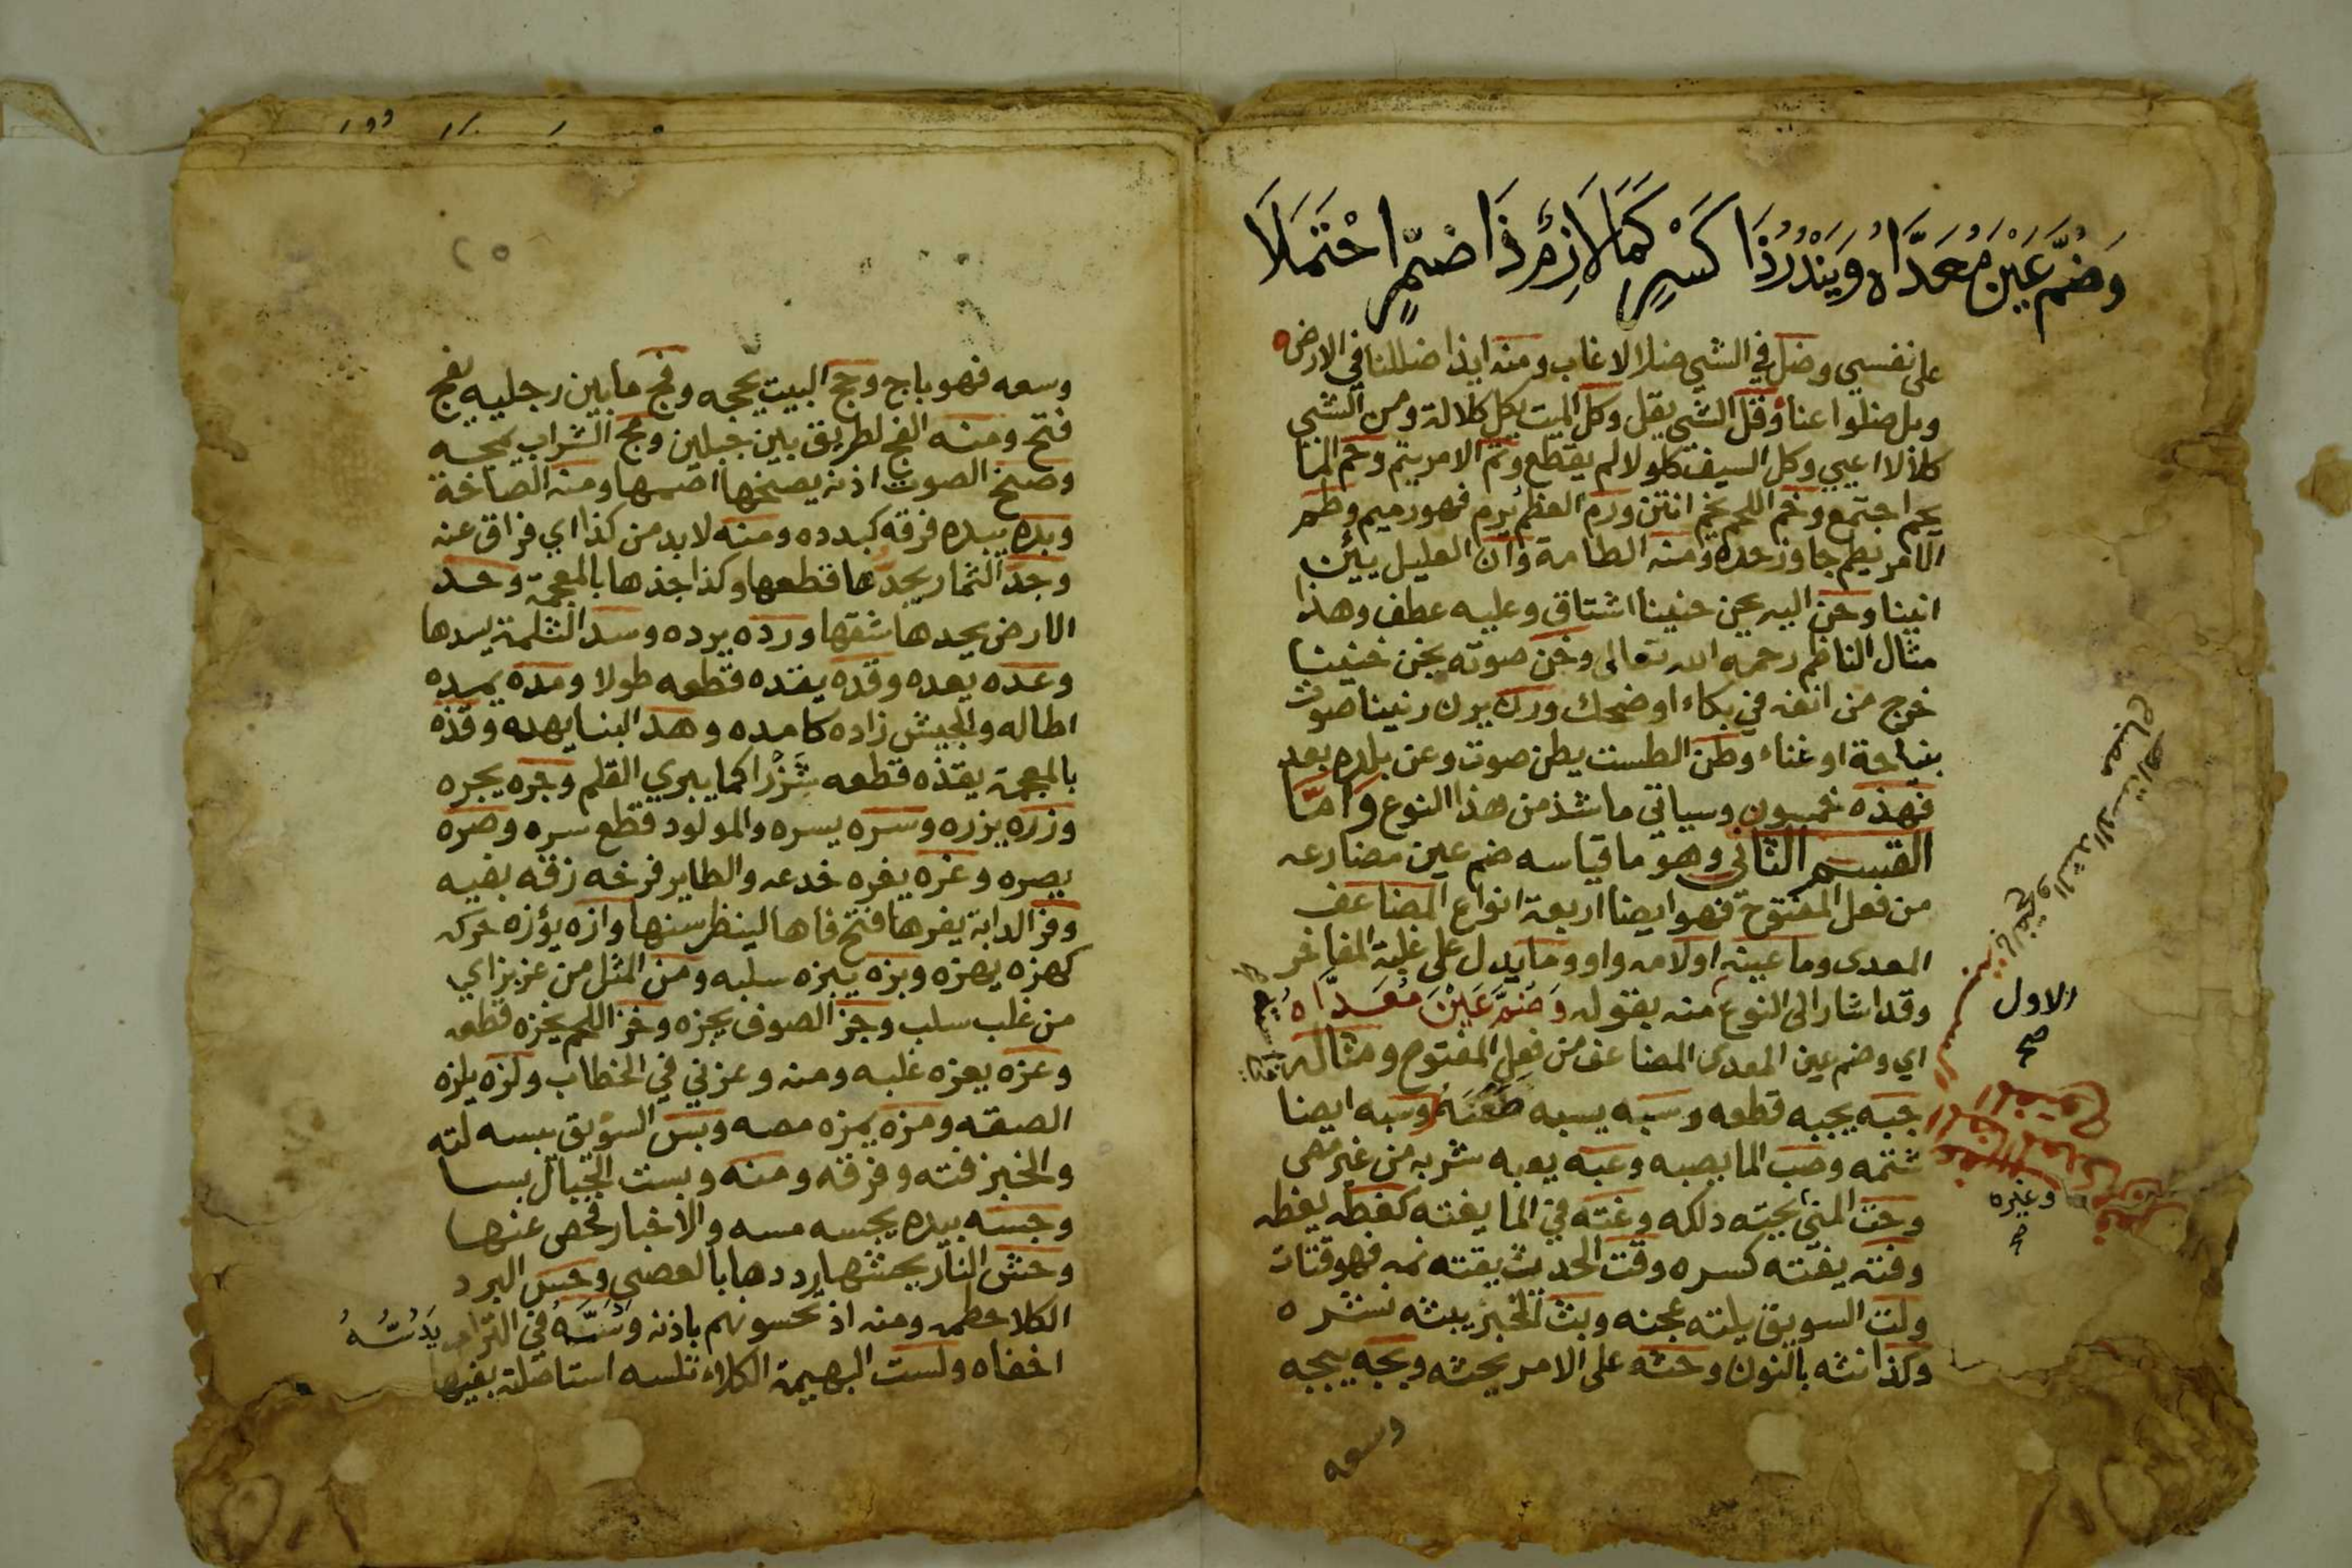 وَضُمَّ عَيْنَ مُعَدَّاهُ وَيَنْدُرُ ذَا كَسْرٍ كَمَا لَازِمٌ ذَا ضَمٍّ احْتَمَلَا
على نفسي وضل في الشي ضلالا غاب ومنه ايذا ضللنا في الارض
وبل ضلوا عنا وقل الشي يقل وكل الميت يكل كلالة ومن الشي
كلالا اعيي وكل السيف كلولا لم يقطع وتم الامر يتم وجم الما
يجم اجتمع وخم اللحم يخم انتن ورم العظم يرم فهو رميم وطم
الامر يطم جاوز حده ومنه الطامة وان العليل يئن
انينا وحن اليه يحن حنينا اشتاق وعليه عطف وهذا
مثال الناظم رحمه الله تعالى وخن صوته يخن خنينا
خرج من انفه في بكاء او ضحك ورن يرن رنينا صوت
بنياحة او غناء وطن الطست يطن صوت وعن بلده بعد
فهذه خمسون وسياتي ما شذ من هذا النوع واما
القسم الثاني وهو ما قياسه ضم عين مضارعه
من فعل المفتوح فهو ايضا اربعة انواع المضاعف
المعدى وما عينه او لامه واو وما يدل على غلبة المفاخر
وقد اشار الى النوع منه بقوله وَضُمَّ عَيْنَ مُعَدَّاهُ
اي وضم عين المعدى المضاعف من فعل المفتوح ومثاله
جبه يجبه قطعه وسبه يسبه طعنه وسبه ايضا
شتمه وصب الما يصبه وعبه يعبه شربه من غير مص
وحت المني يحته دلكه وغته في الما يغته كغطه يغطه
وفته يفته كسره وقت الحديث يقته نمه فهو قتات
ولت السويق يلته عجنه وبث الخبر يبثه نشره
وكذا نثه بالنون وحثه على الامر يحثه وبجه يبجه
وسعه
الاول
صح
وغيره
صح
وسعه فهو باج وحج البيت يحجه وفج ما بين رجليه يفج
فتح ومنه الفج لطريق بين جبلين ومج الشراب يمجه
وصخ الصوت اذنه يصخها اصمها ومنه الصاخة
وبده يبده فرقه كبدده ومنه لا بد من كذا اي فراق عنه
وجد الثمار يجدها قطعها وكذا جذها بالمعجمة وخد
الارض يخدها شقها ورده يرده وسد الثلمة يسدها
وعده يعده وقده يقده قطعه طولا ومده يمده
اطاله والجيش زاده كامده وهد البنا يهده وقذه
بالمعجمة يقذه قطعه شزرا كما يبري القلم وجره يجره
وزره يزره وسره يسره والمولود قطع سره وصره
يصره وغره يغره خدعه والطاير فرخه زقه بفيه
وفر الدابة يفرها فتح فاها لينظر سنها وازه يؤزه حركه
كهزه يهزه وبزه يبزه سلبه ومن المثل من عز بز اي
من غلب سلب وجز الصوف يجزه وخز اللحم يخزه قطعه
وعزه يعزه غلبه ومنه وعزني في الخطاب ولزه يلزه
الصقه ومزه يمزه مصه وبس السويق يبسه لته
والخبز فته وفرقه ومنه وبست الجبال بسا
وجسه بيده يجسه مسه والاخبار فحص عنها
وحش النار يحشها رددها بالعصي وحس البرد
الكلا حطمه ومنه اذ تحسونهم باذنه ودسه في التراب يَدُسُّهُ
اخفاه ولست البهيمة الكلاء تلسه استاصلته بفيها